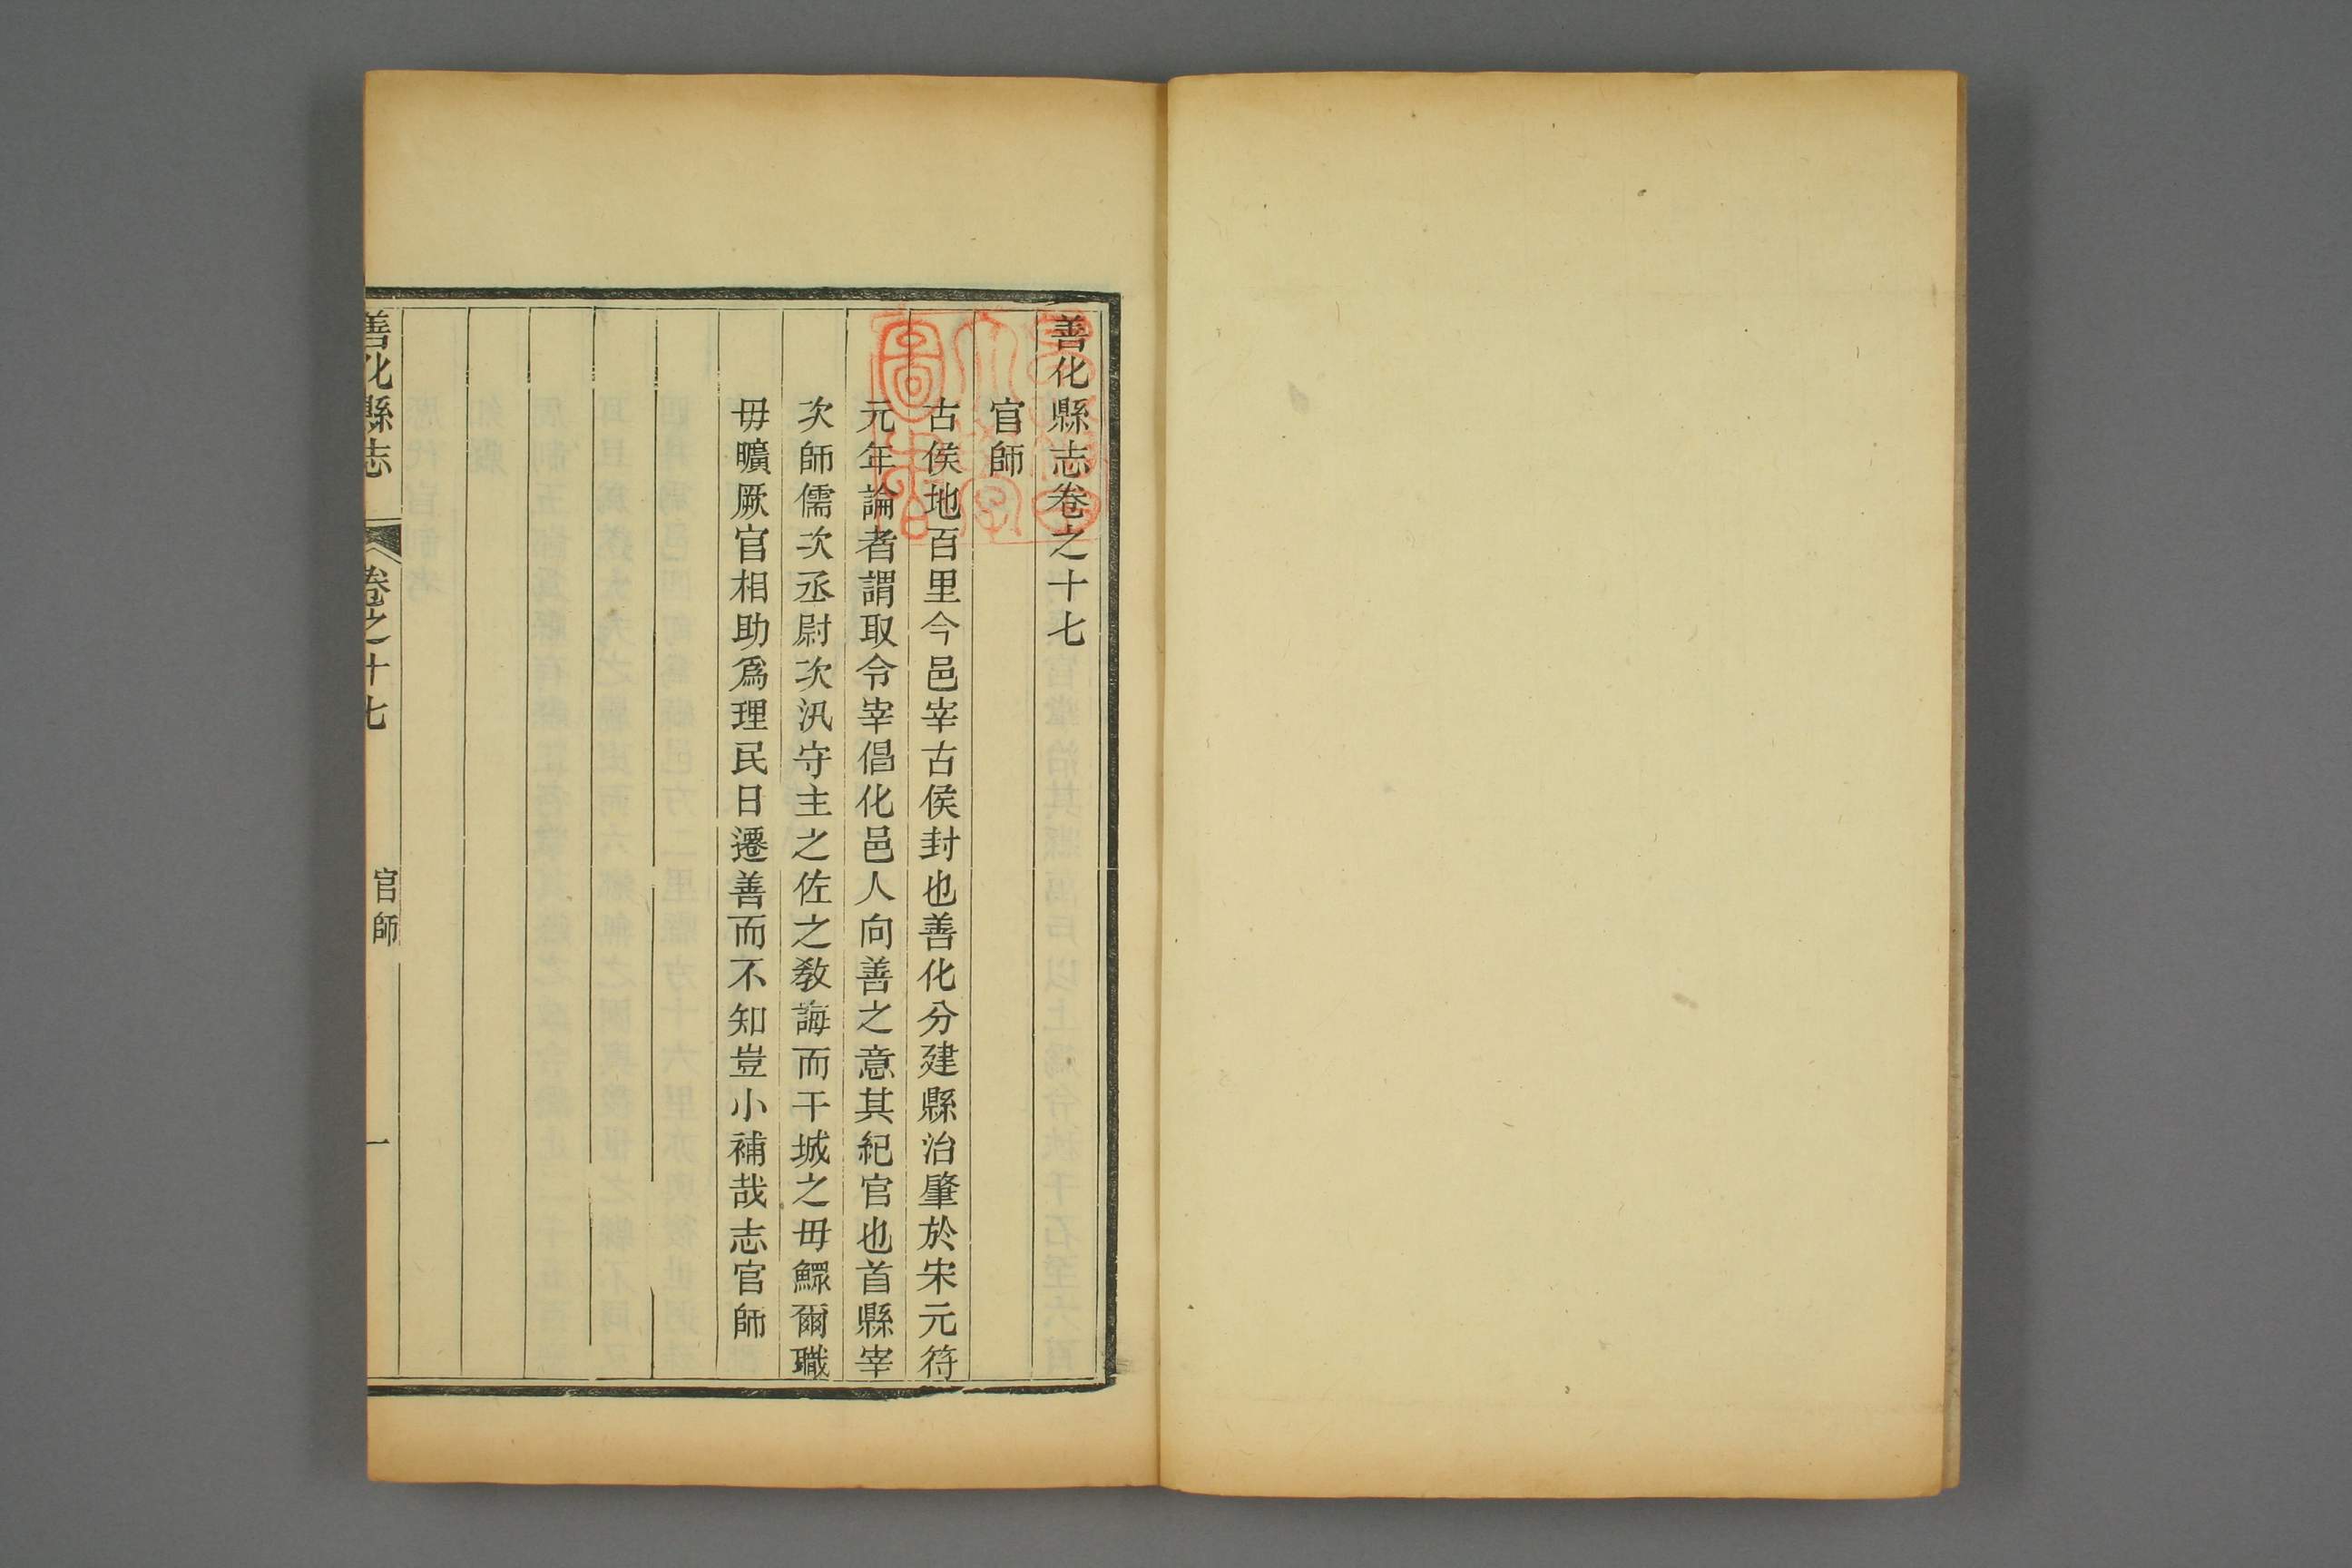 善化縣志卷之十七
官師
古侯地百里今邑宰古侯封也善化分建縣治肇於宋元符
元年論者謂取令宰倡化邑人向善之意其紀官也首縣宰
次師儒次丞尉次汛守主之佐之敎誨而干城之毋鰥爾職
毋曠厥官相助爲理民日遷善而不知豈小補哉志官師
善化縣志
卷之十七
官師
一